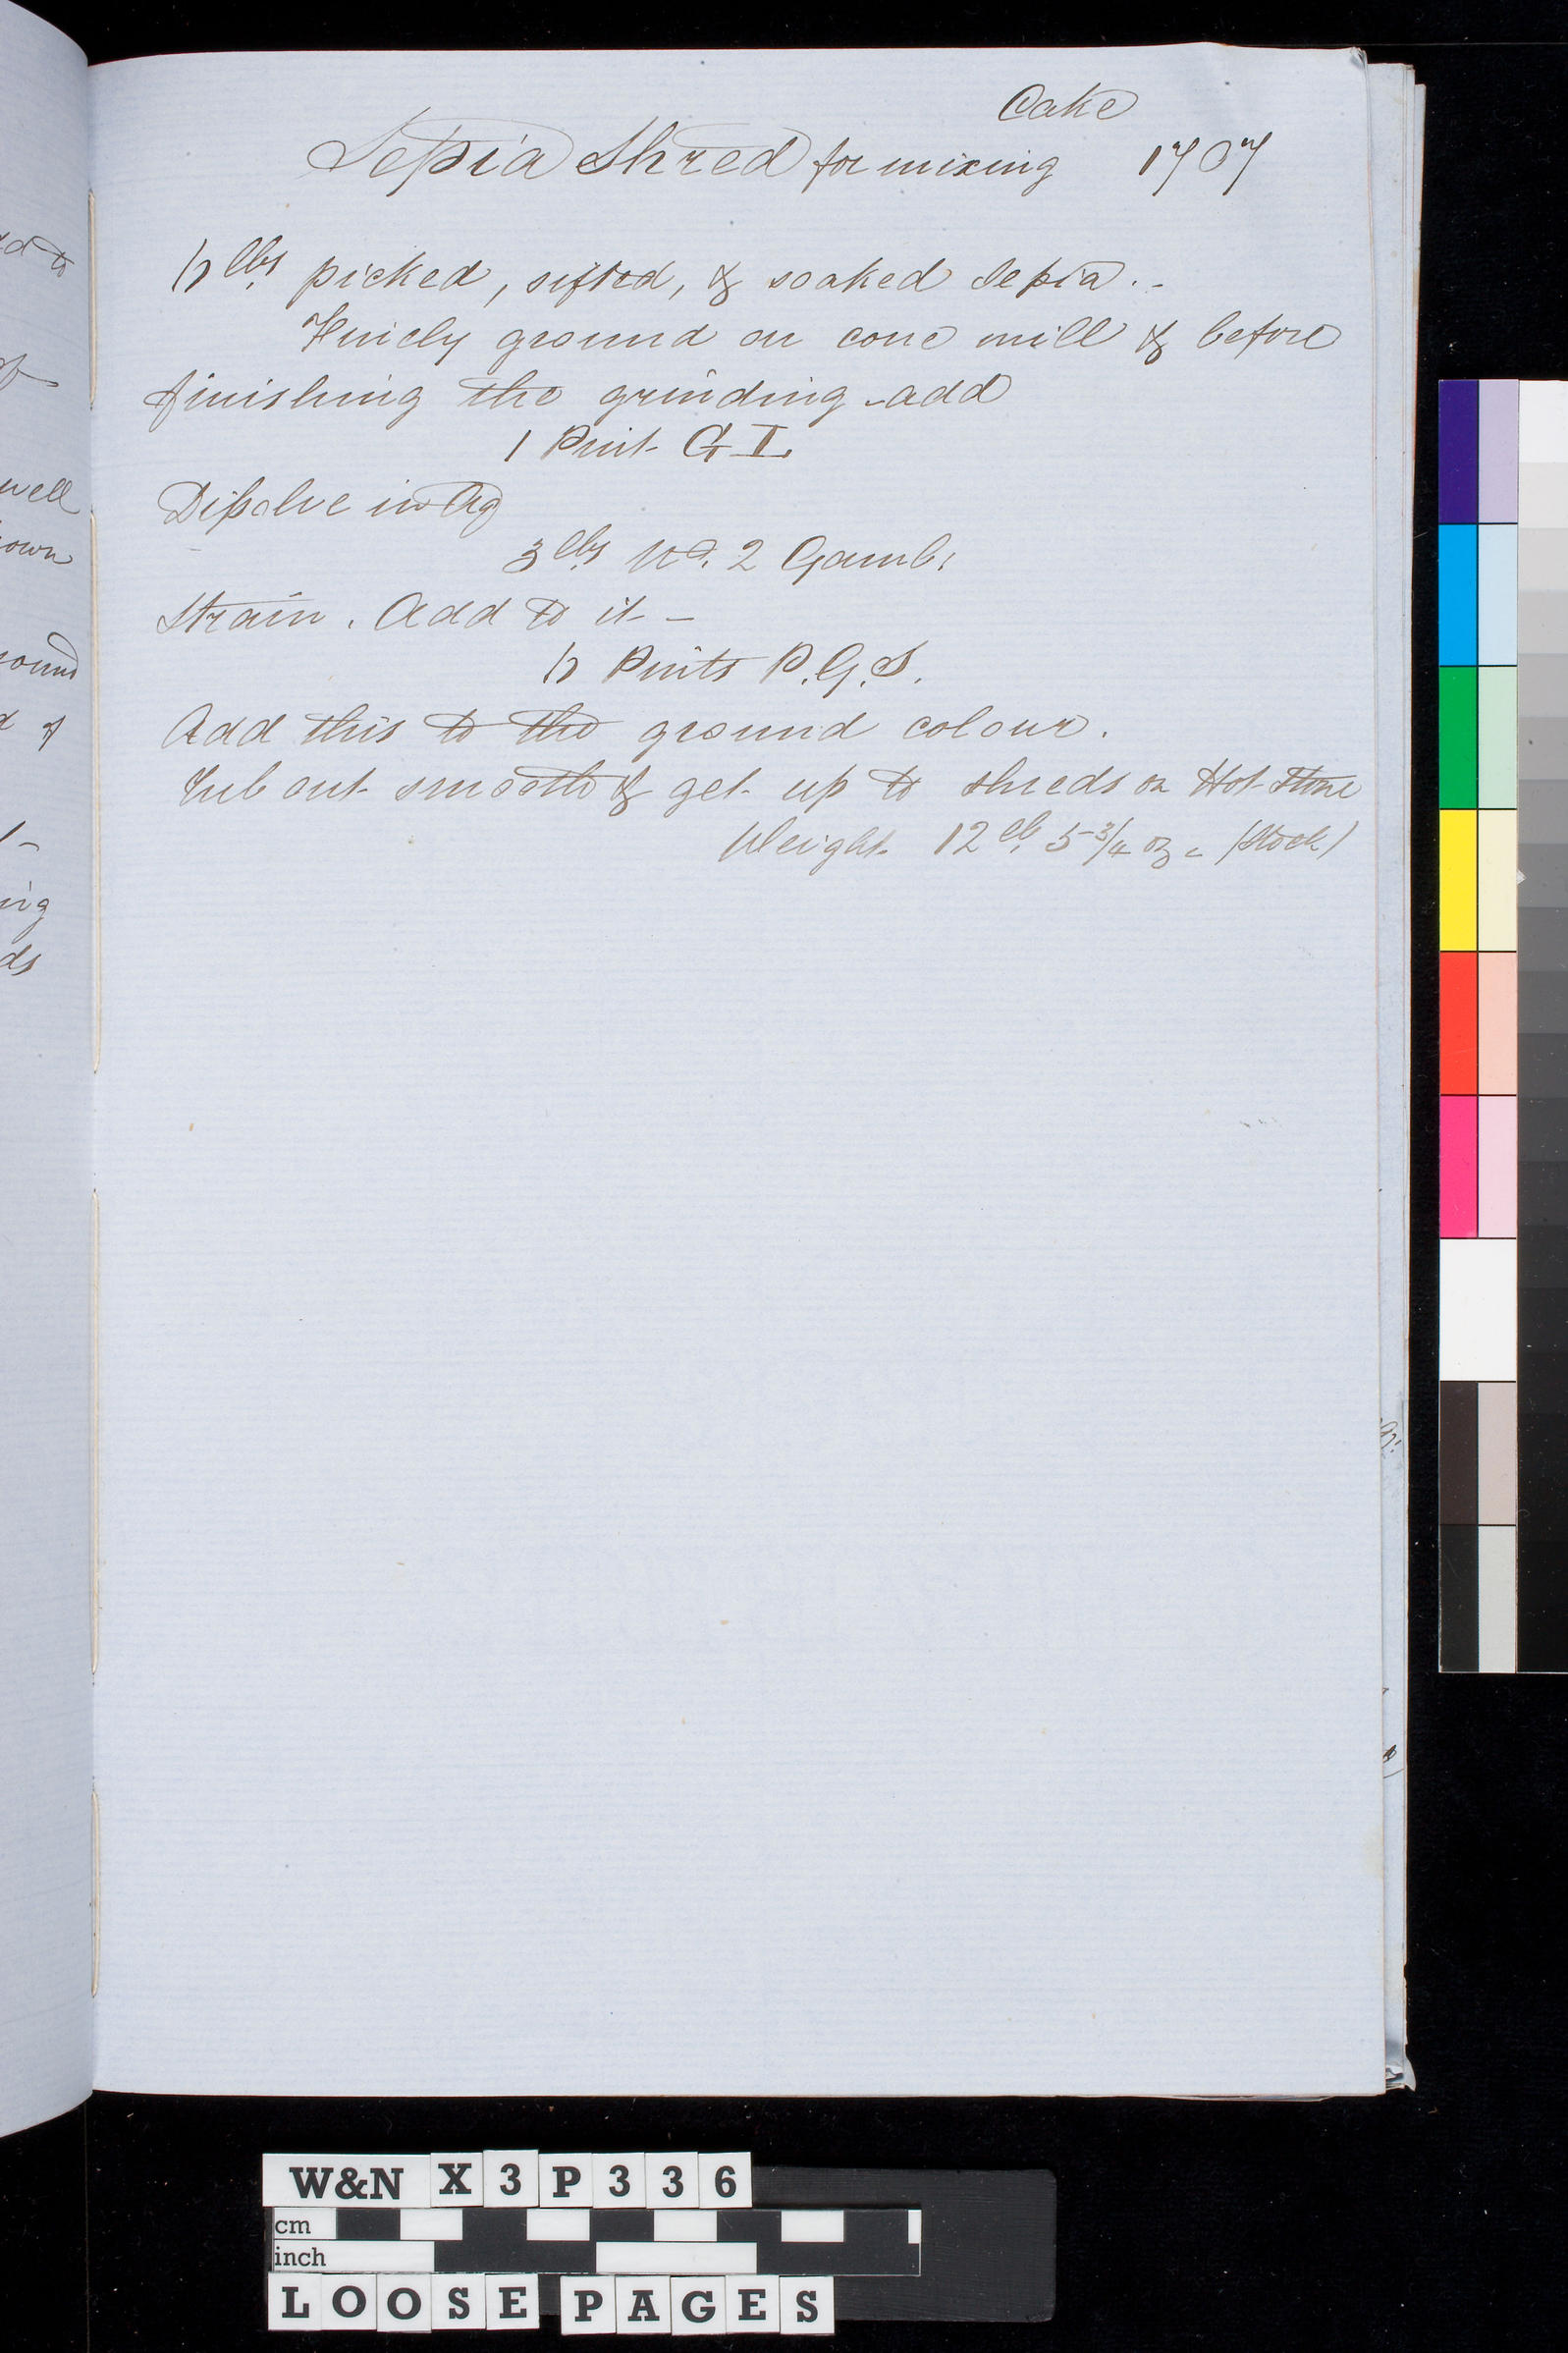 Cake
Sepia Shred for mixing 1707
lbs picked, sifted, & soaked Sepia.
Finely ground on cone mill & before
finishing the grinding add
1 Pint G I
Dissolve in Aq
3 lbs No. 2 Gamb.
Strain. Add to it
Pints P.G.S.
Add this to the ground colour.
Tub out smooth & get up to shreds on Hot Stone
Weight 12 lb. 5 3/4 oz (Stock)
d to
of
well
own
ound
of
ds
W&N X3P336
cm
inch
LOOSE PAGES